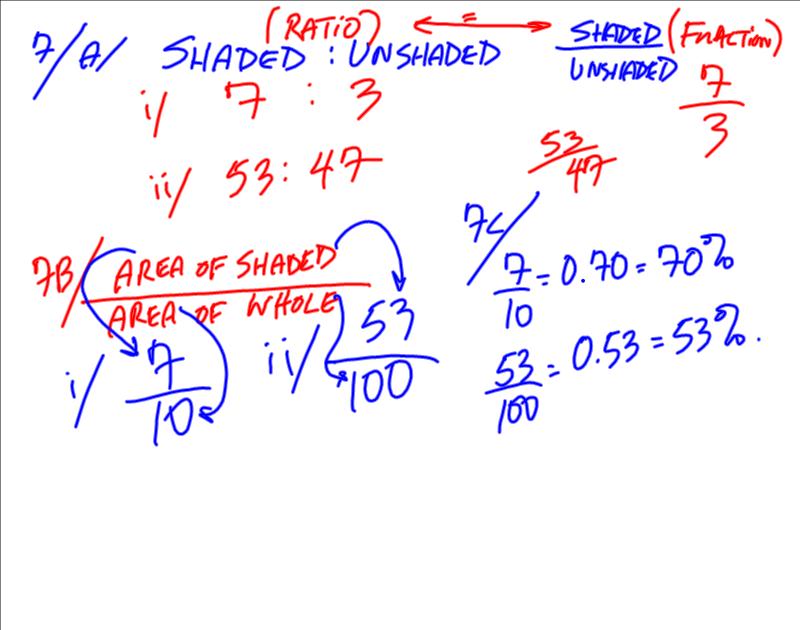 7/A/ SHADED : UNSHADED (RATIO) = SHADED/UNSHADED (FRACTION)
i/ 7 : 3 7/3
ii/ 53 : 47 53/47
7B/ AREA OF SHADED / AREA OF WHOLE
i/ 7/10 ii/ 53/100
7C/
7/10 = 0.70 = 70%
53/100 = 0.53 = 53%.